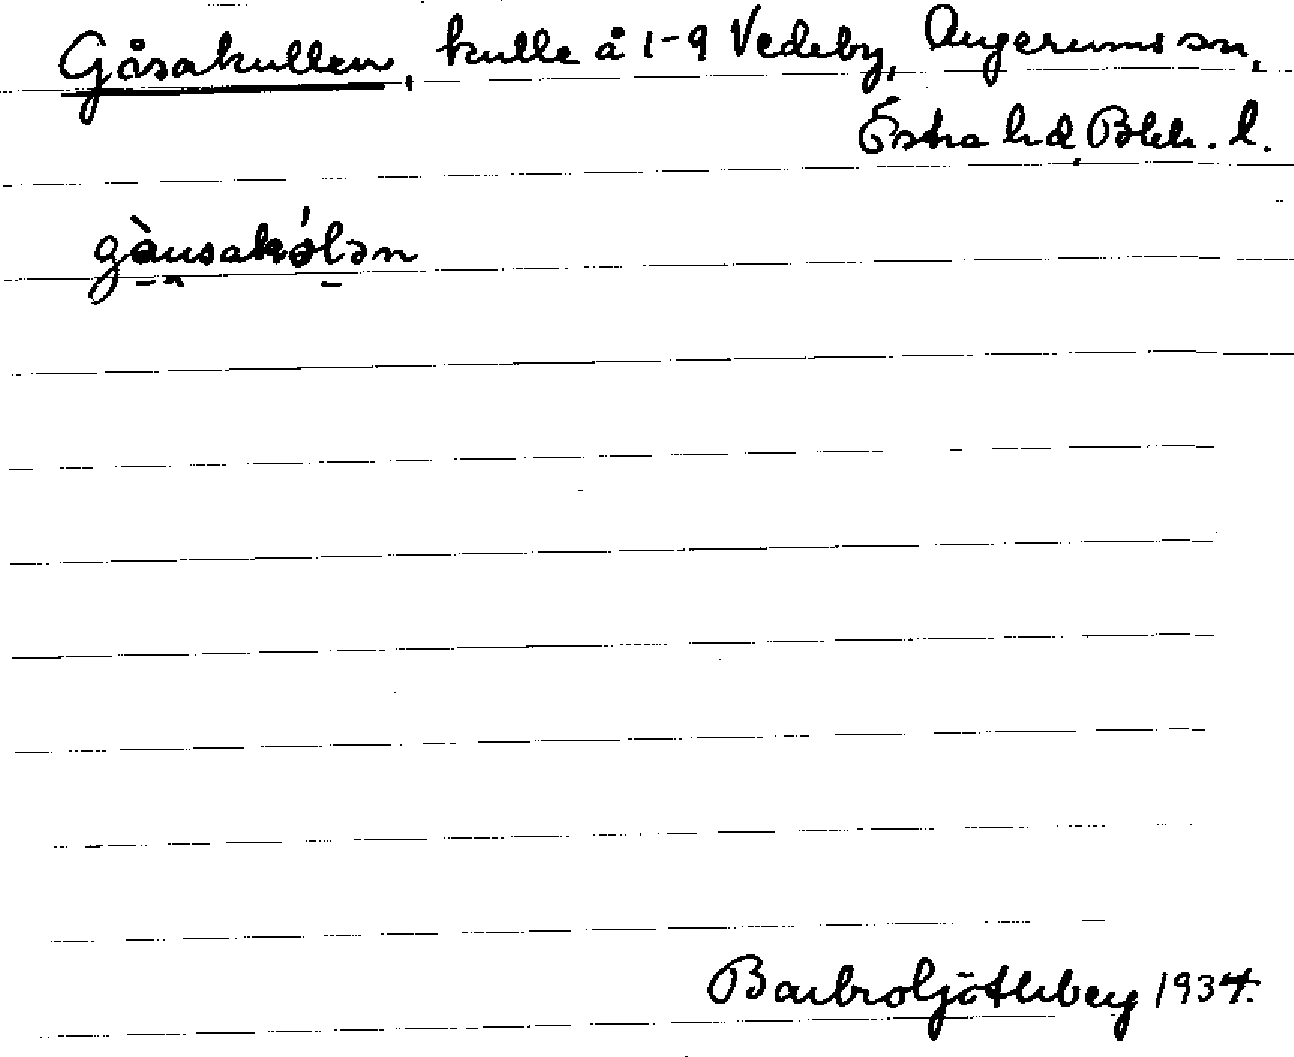 Gåsakullen, kulle å 1-9 Vedeby, Augerums sn,
Östra hd, Blek. l.
gàusakólən
Barbro Götheberg 1934.